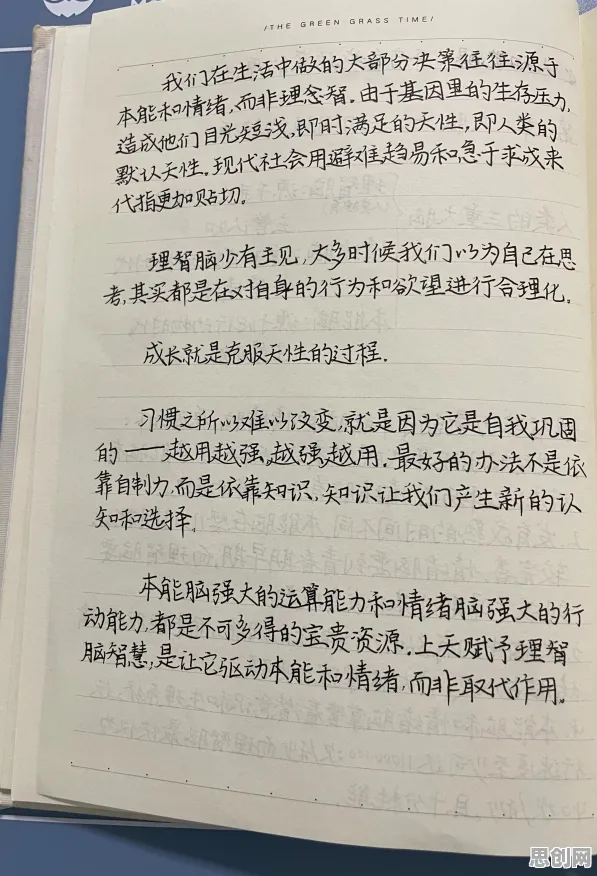 /THE GREEN GRASS TIME/
我们在生活中做的大部分决策往往源于
本能和情绪,而非理念智.由于基因里的生存压力,
造成他们目光短浅,即时满足的天性,即人类的
默认天性.现代社会用避难趋易和急于求成来
代指更加贴切。
理智脑少有主见,大多时候我们以为自己在思
考,其实都是在对自身的行为和欲望进行合理化。
成长就是克服天性的过程.
习惯之所以难以改变,就是因为它是自我巩固
的——越用越强,越强越用.最好的办法不是依
靠自制力,而是依靠知识,知识让我们产生新的认
知和选择.
本能脑强大的运算能力和情绪脑强大的行
动能力,都是不可多得的宝贵资源.上天赋予理智
脑智慧,是让它驱动本能和情绪,而非取代作用。
思创网